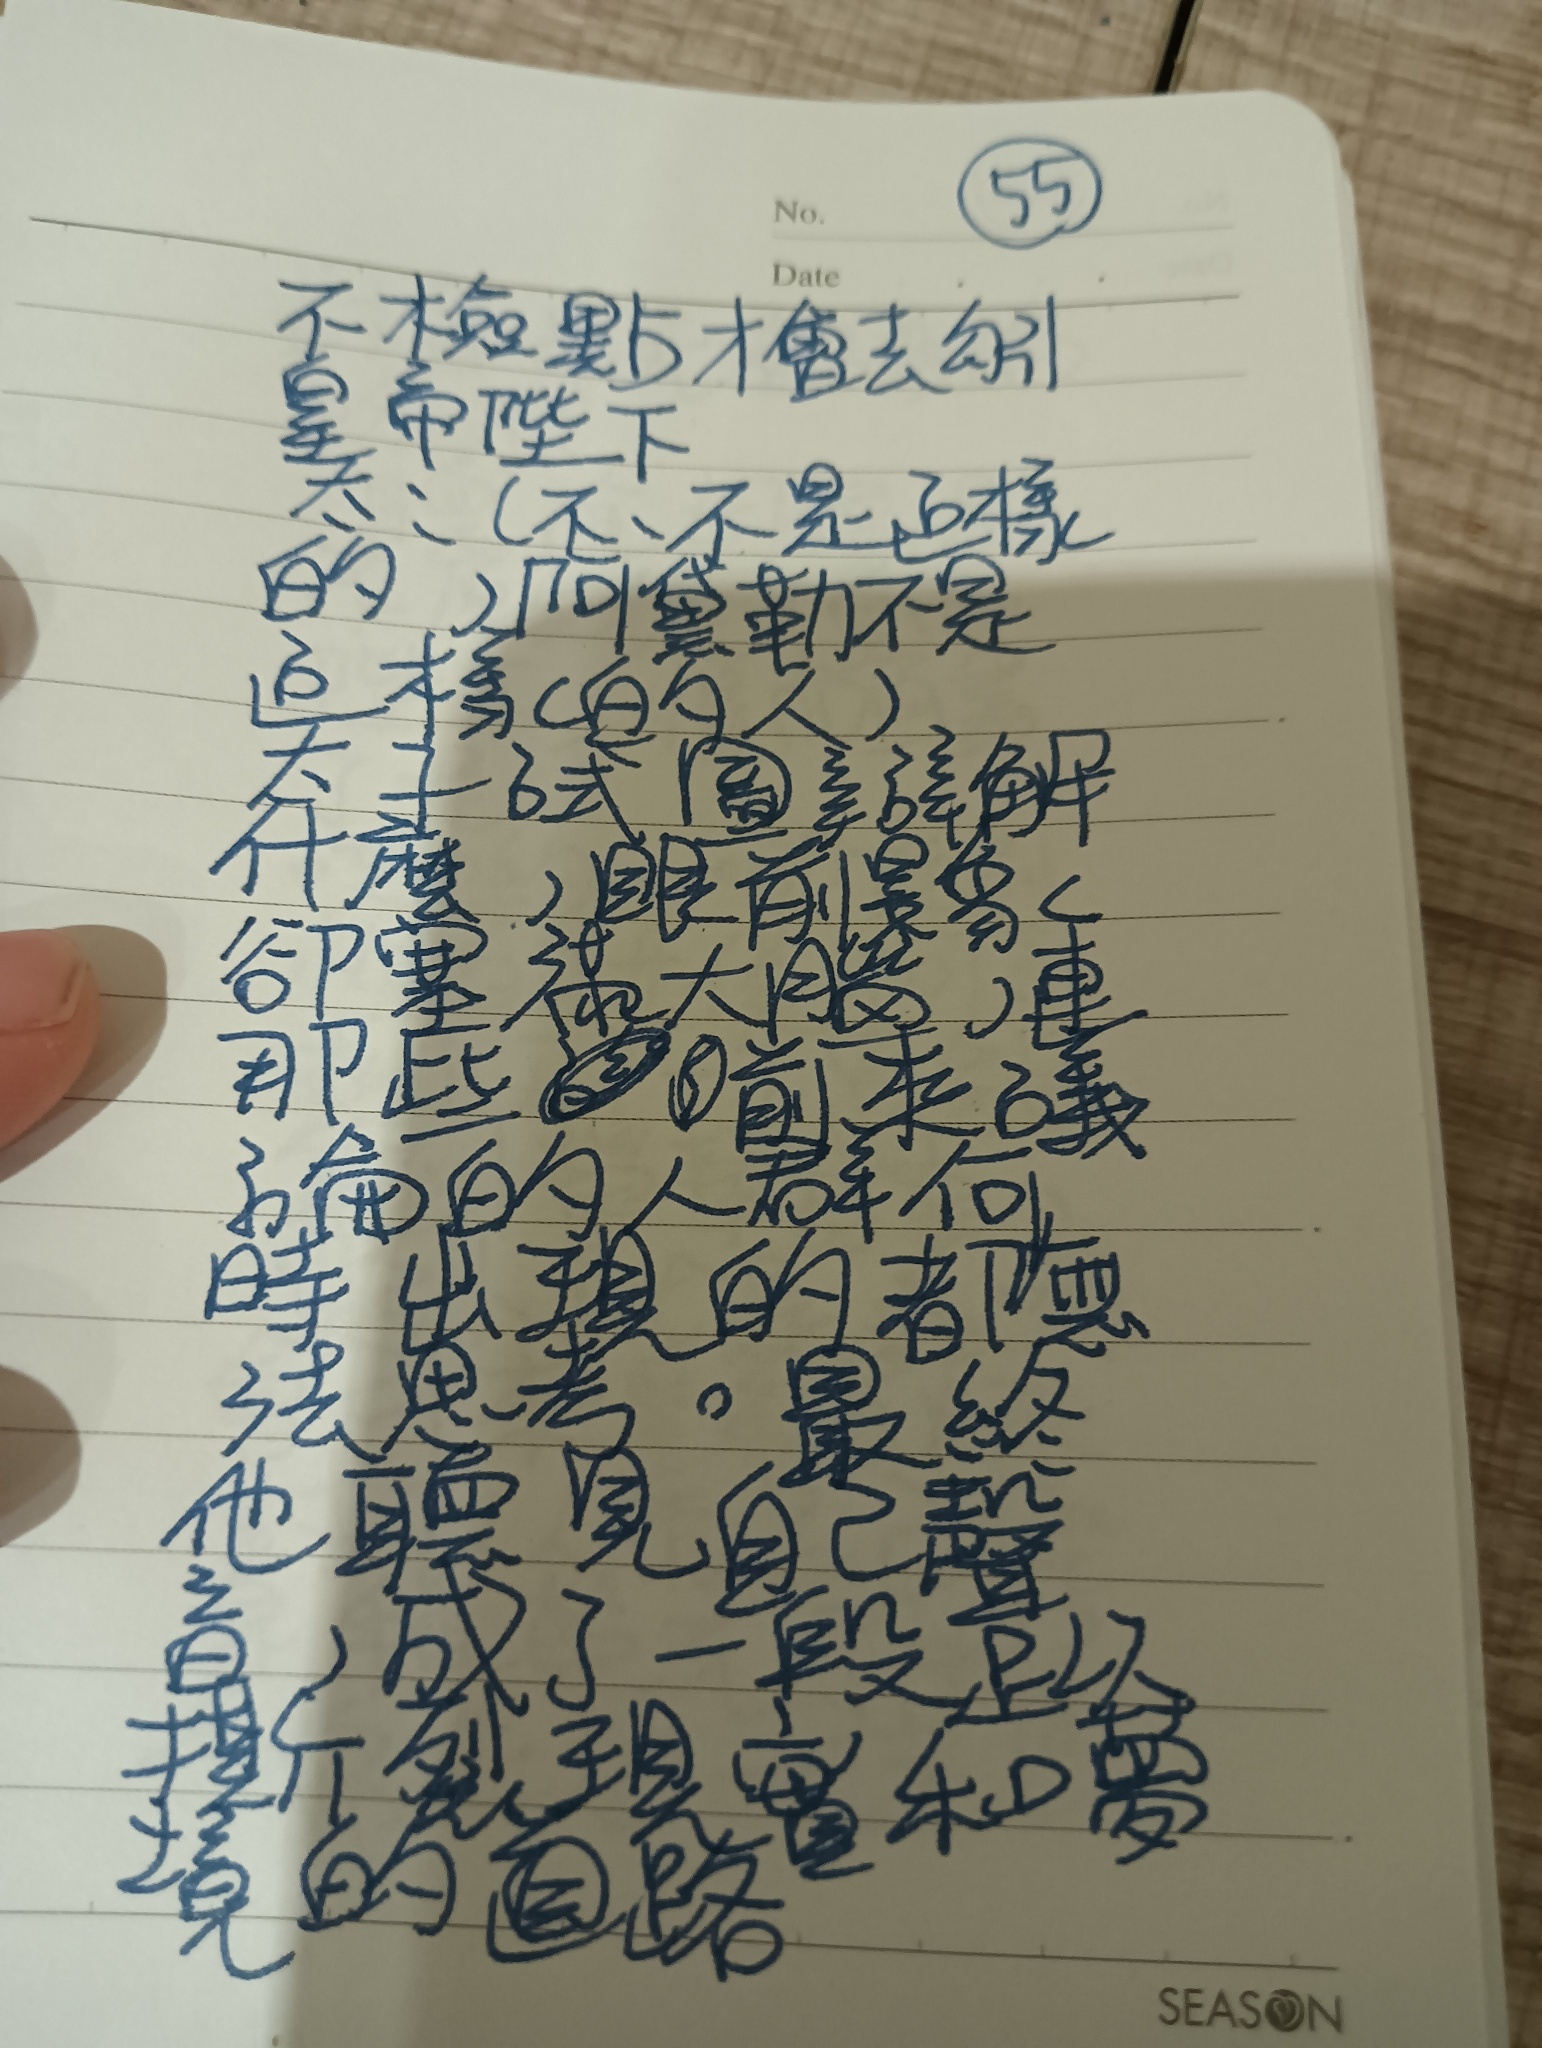 No. 55
Date
不檢點才會去勾引
皇帝陛下
太:(不、不是這樣
的,阿黛勒不是
這樣(的人)
太子試圖詳解
什麼,眼前景象
卻塞滿大腦,連
那些前來議
論的人群何
時出現的都無
法思考。最終
他聽見自己聲
音,成了一段足以
撐裂現實和夢
境的道路
SEASON